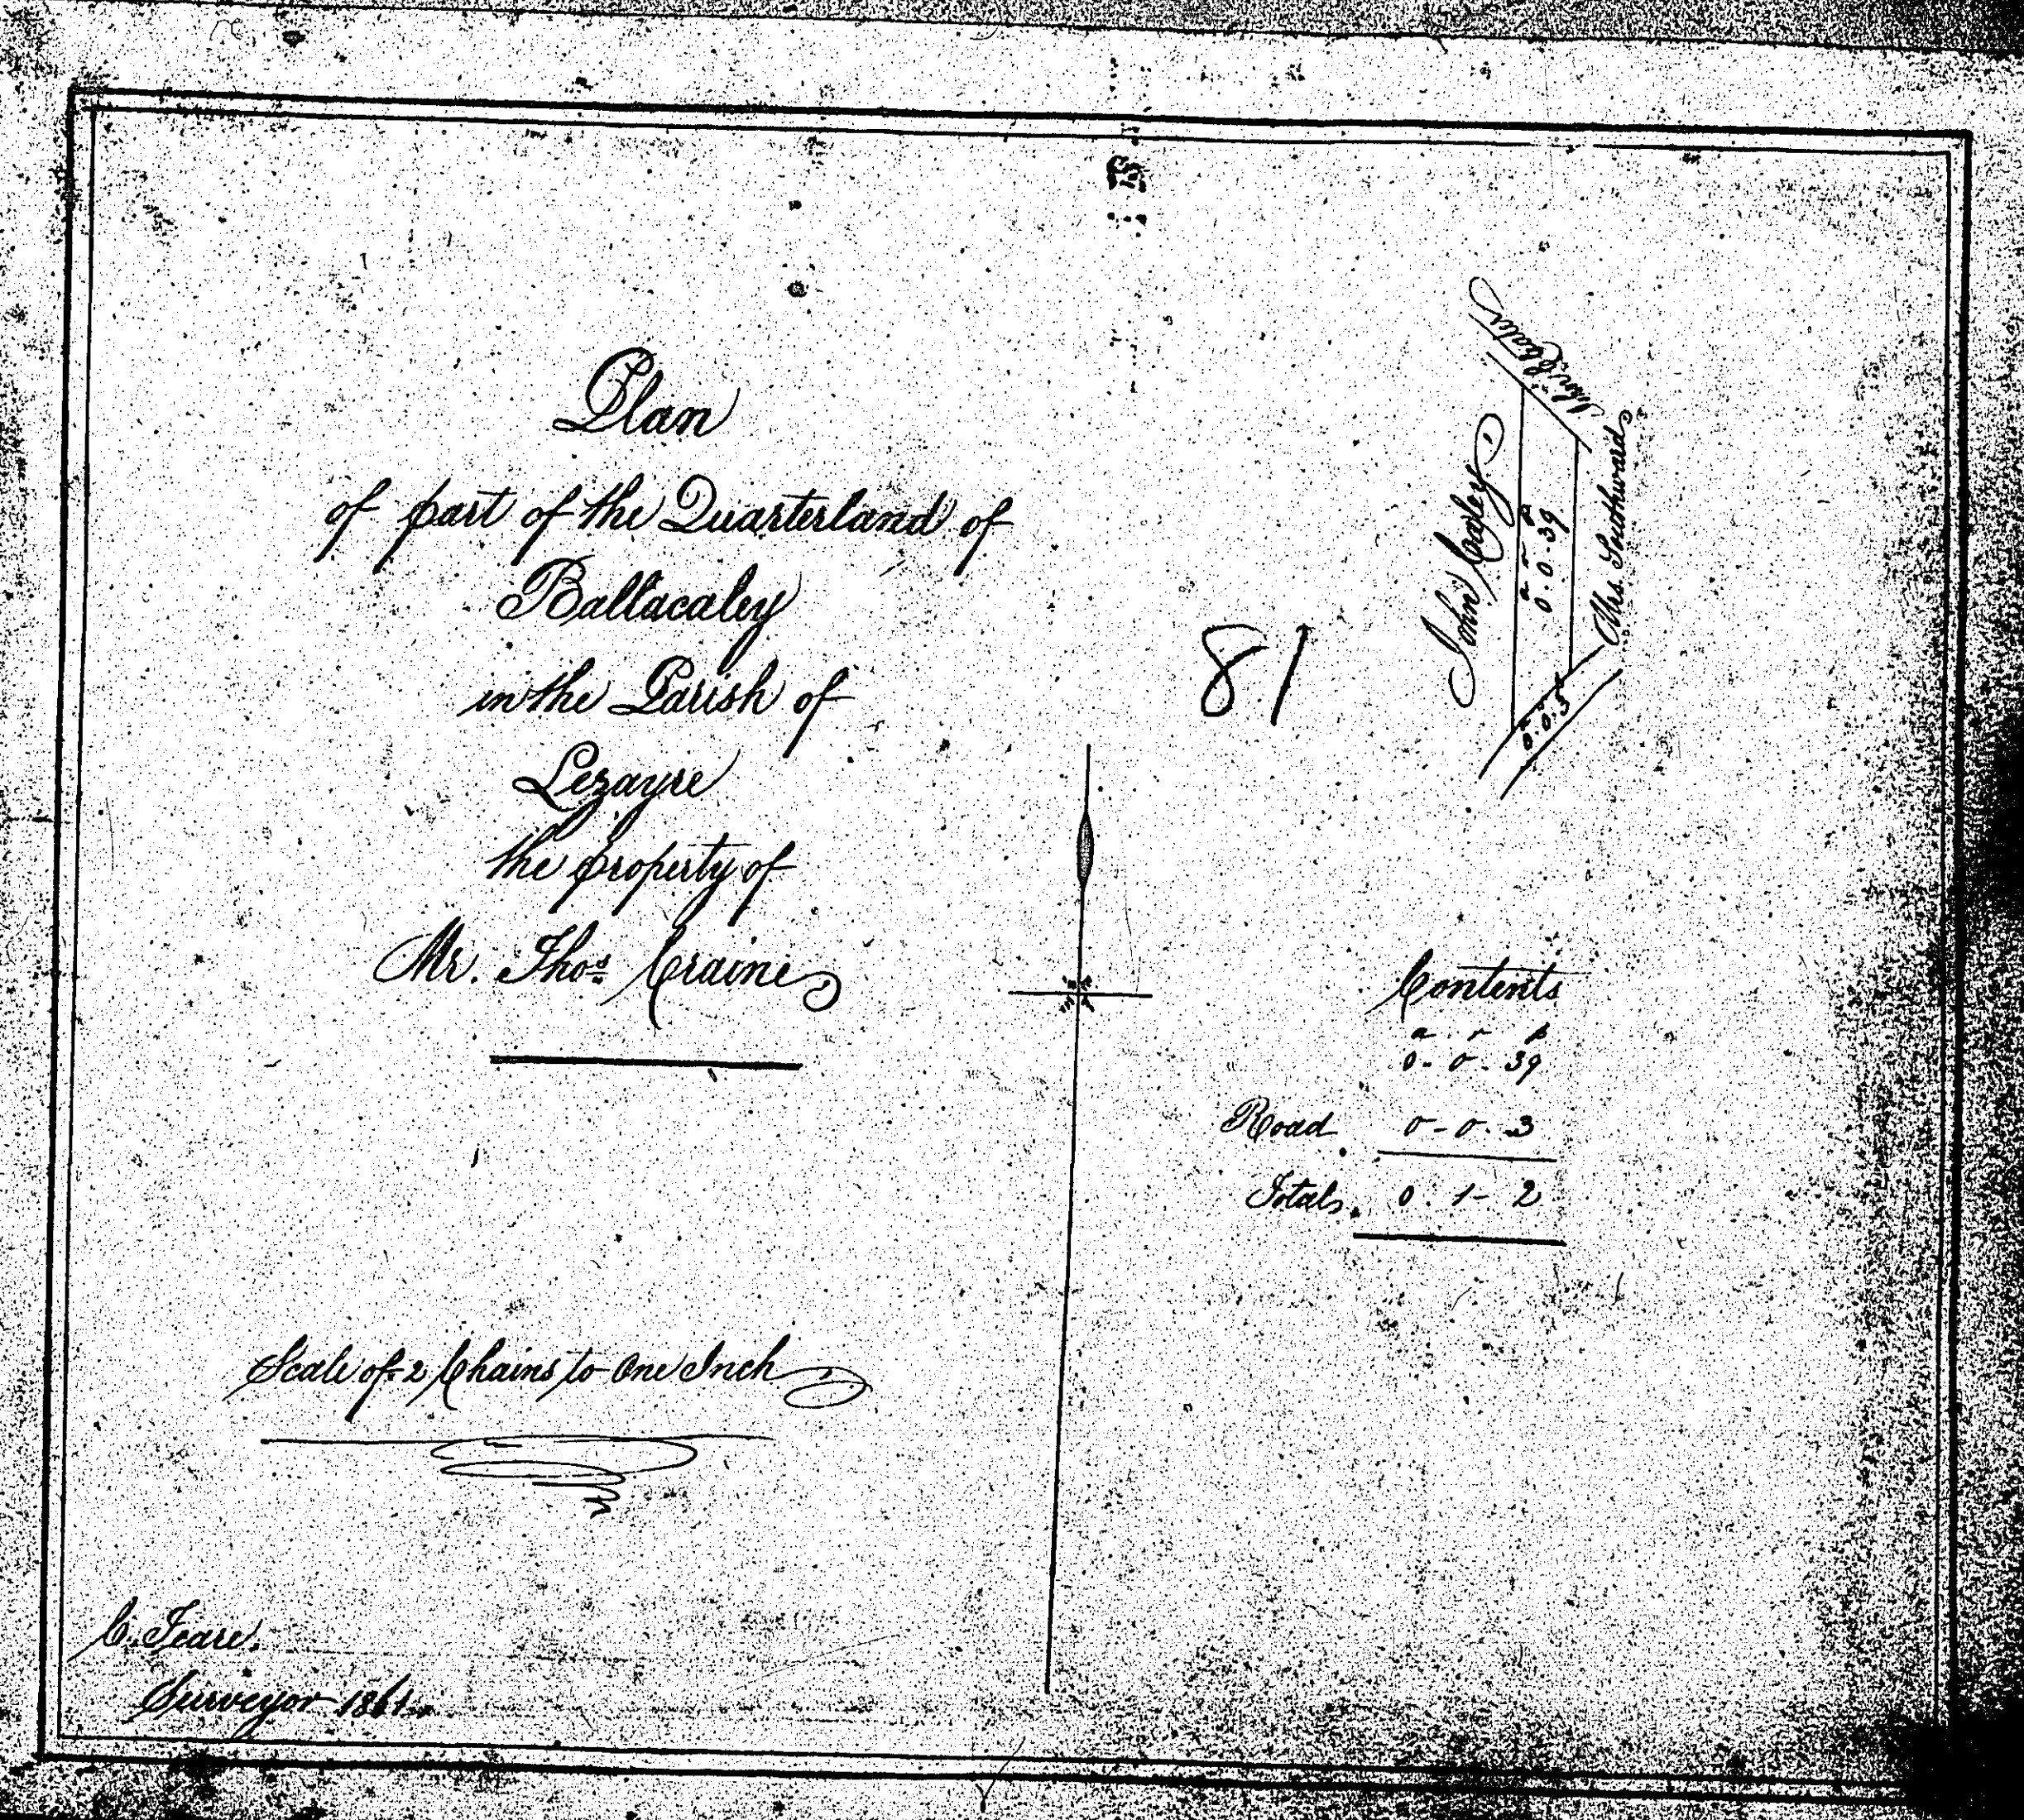 Plan
of part of the Quarterland of
Ballacaley
in the Parish of
Lezayre
the property of
Mr. Thos. Craine
Scale of 2 Chains to One Inch
C. Teare.
Surveyor 1861.
81
John
John Cogley
a r p
0.0.39
Mrs. Southward
Contents
a r p
0-0-39
Road 0-0-3
Total 0.1-2